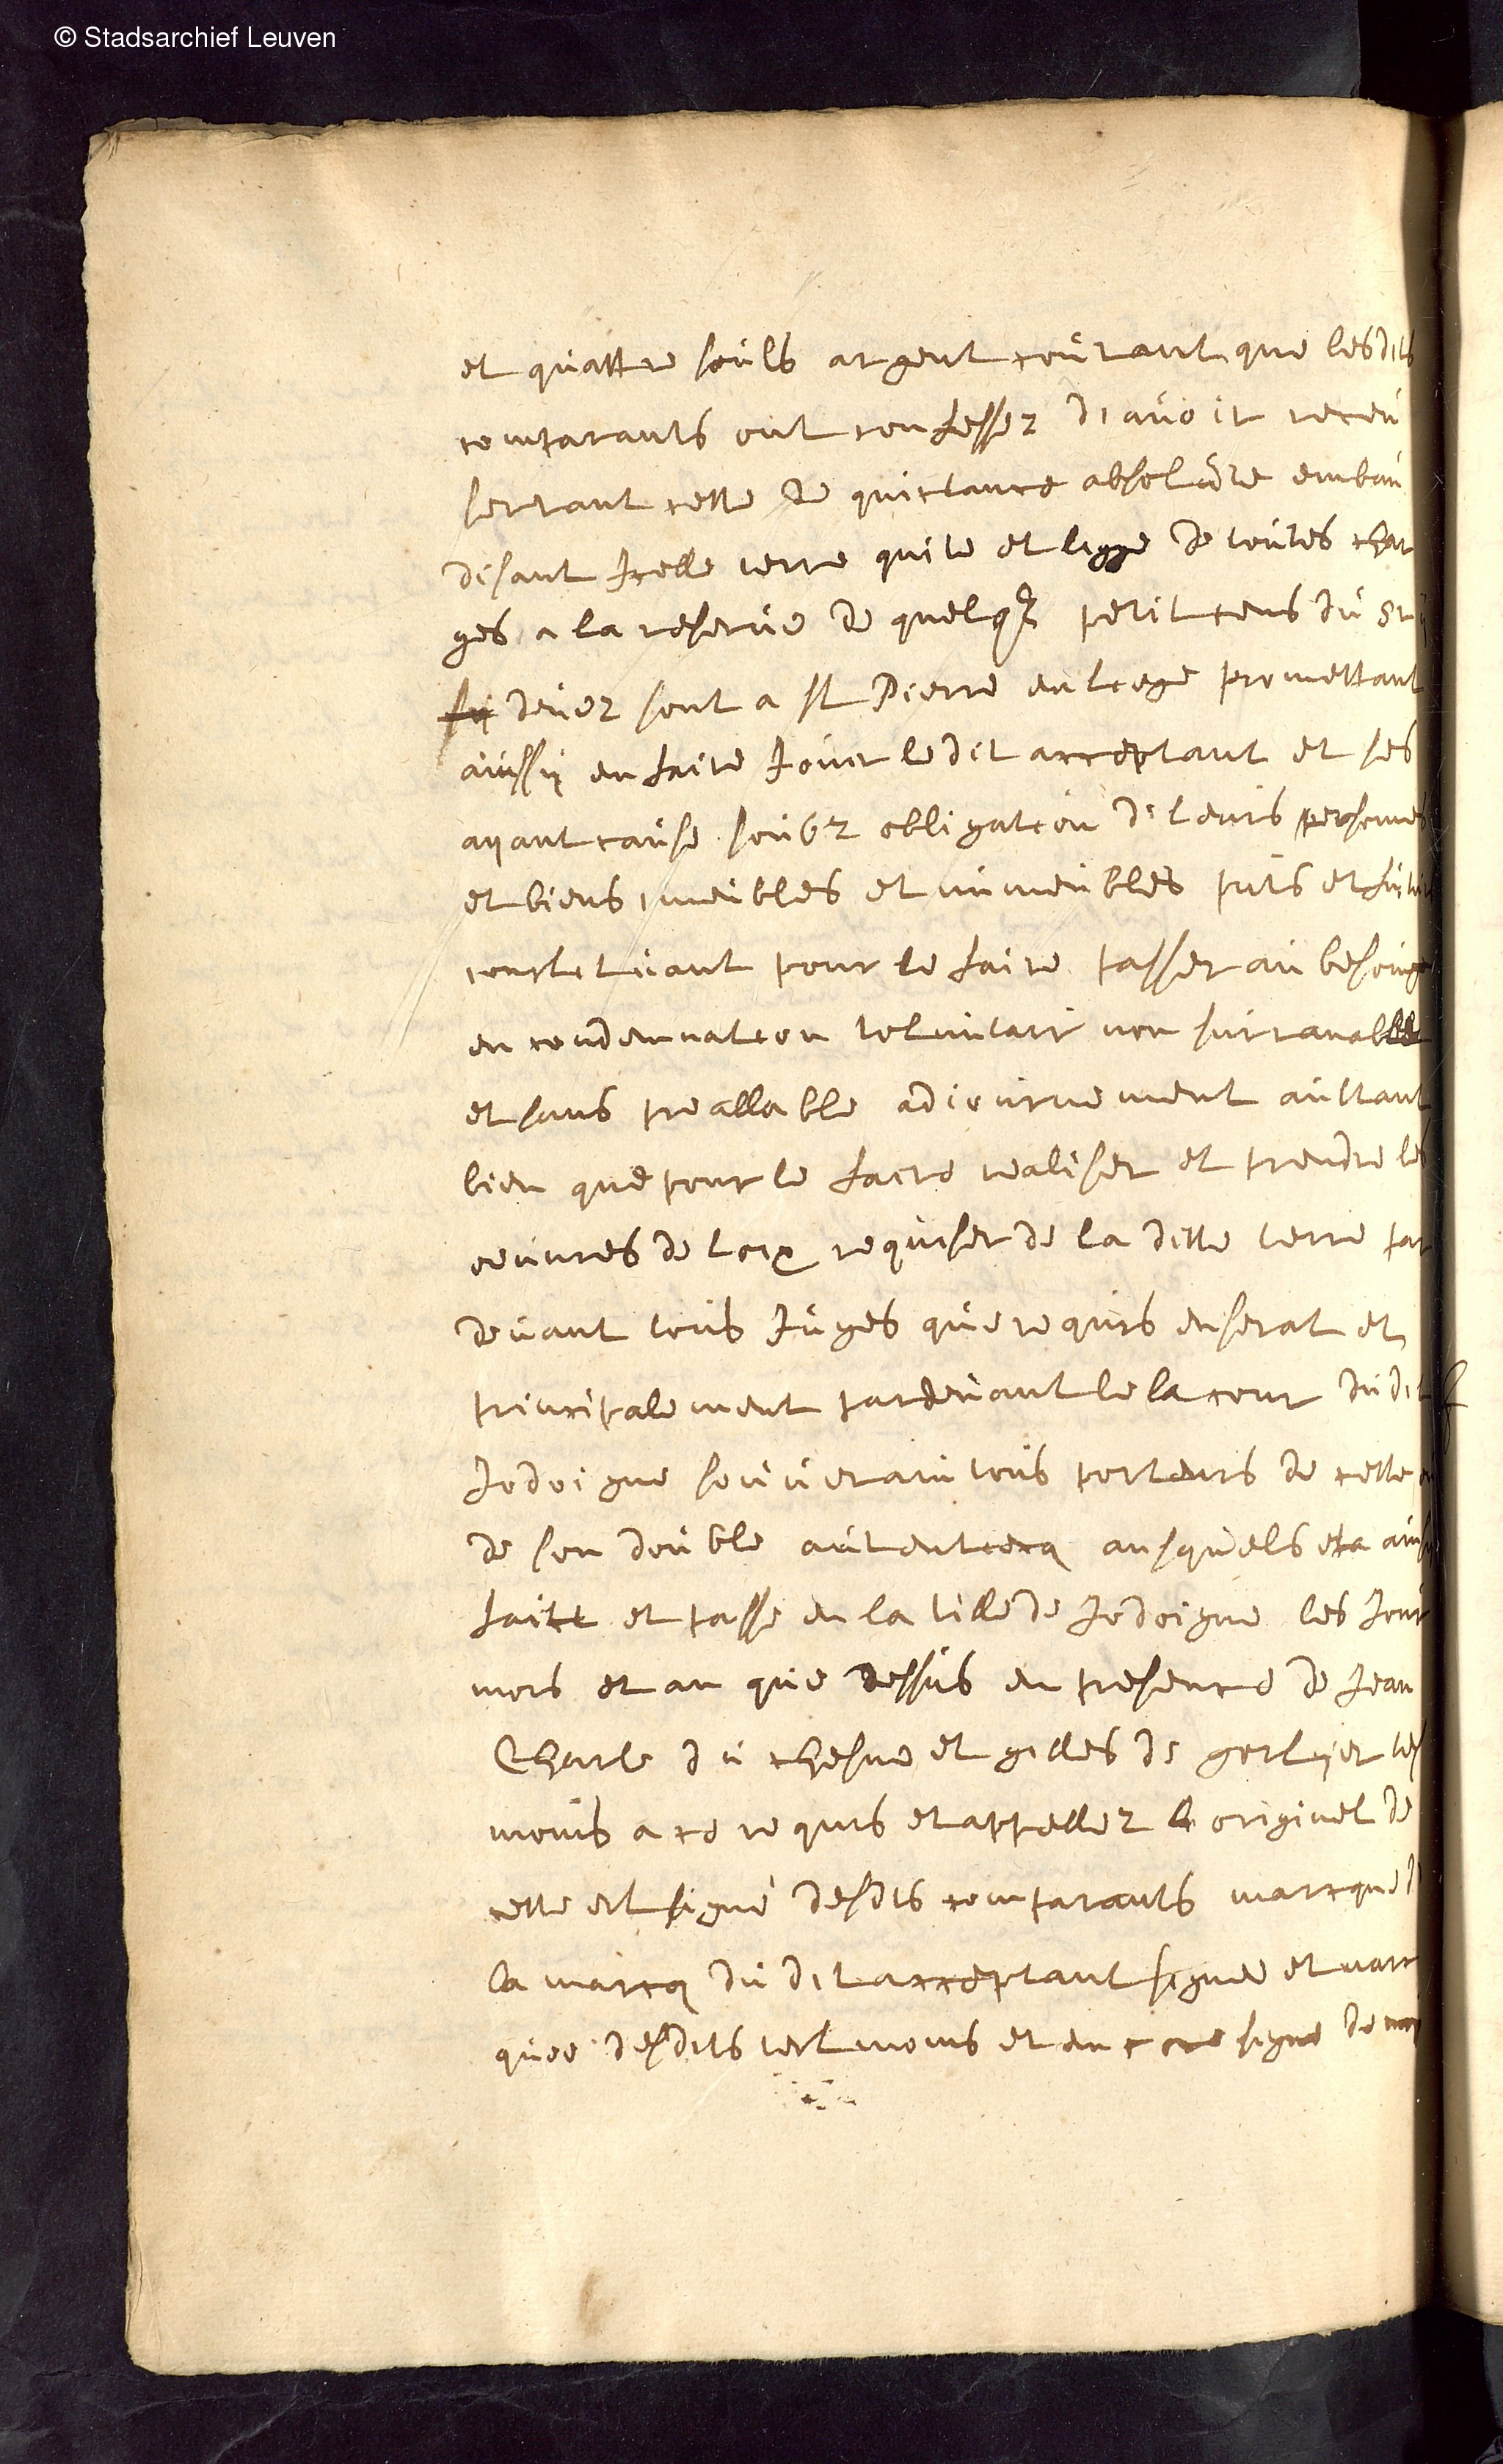 © Stadsarchief Leuven
et quattre souls argent courant que lesdits
comparants ont confessez d'avoir receu
servant cette de quictance absolutte embau
disant icelle terre quite et ligge de toutes char
ges a la reserve de quelq petit cens du
devez sont a St Pierre en leege promettant
aussy en faire jouer ledit acceptant et ses
ayant cause soubz obligation de leurs personnes
et biens meubles et immeubles puts et
constituant pour le faire passer au besoing
en condemnation voluntair non surranable
et sans preallable adiournement aultant
bien que pour le faire realiser et prendre les
oeuvres de loix requiser de la ditte terre par
devant tous juges que requis en serat et
principalement pardevant le la cour dudit
Jodoigne souverain tous porteurs de cette
de son double autenticq ausquels
faict et passe en la ville de Jodoigne les jour
mois et an que dessus en presence de Jean
Charle du chesne et gilles de gorlyer tes
moins a ce requis et appellez le originel de
cette est signe desdis comparants marcque
la marcq dudit acceptant signee et marc
quee desdits testmoins et encore signe de